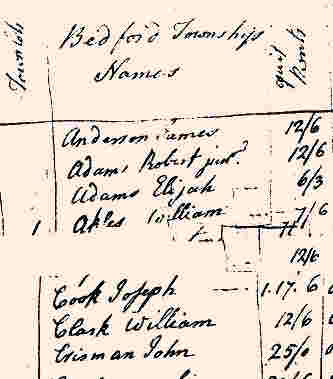 Township
Bedford Township
Names
quit Rents
Anderson James 12/6
Adams Robert junr. 12/6
Adams Elijah 6/3
1 Akles William 7/6
12/6
Cook Joseph 1.17.6
Clark William 12/6
Crisman John 25/0